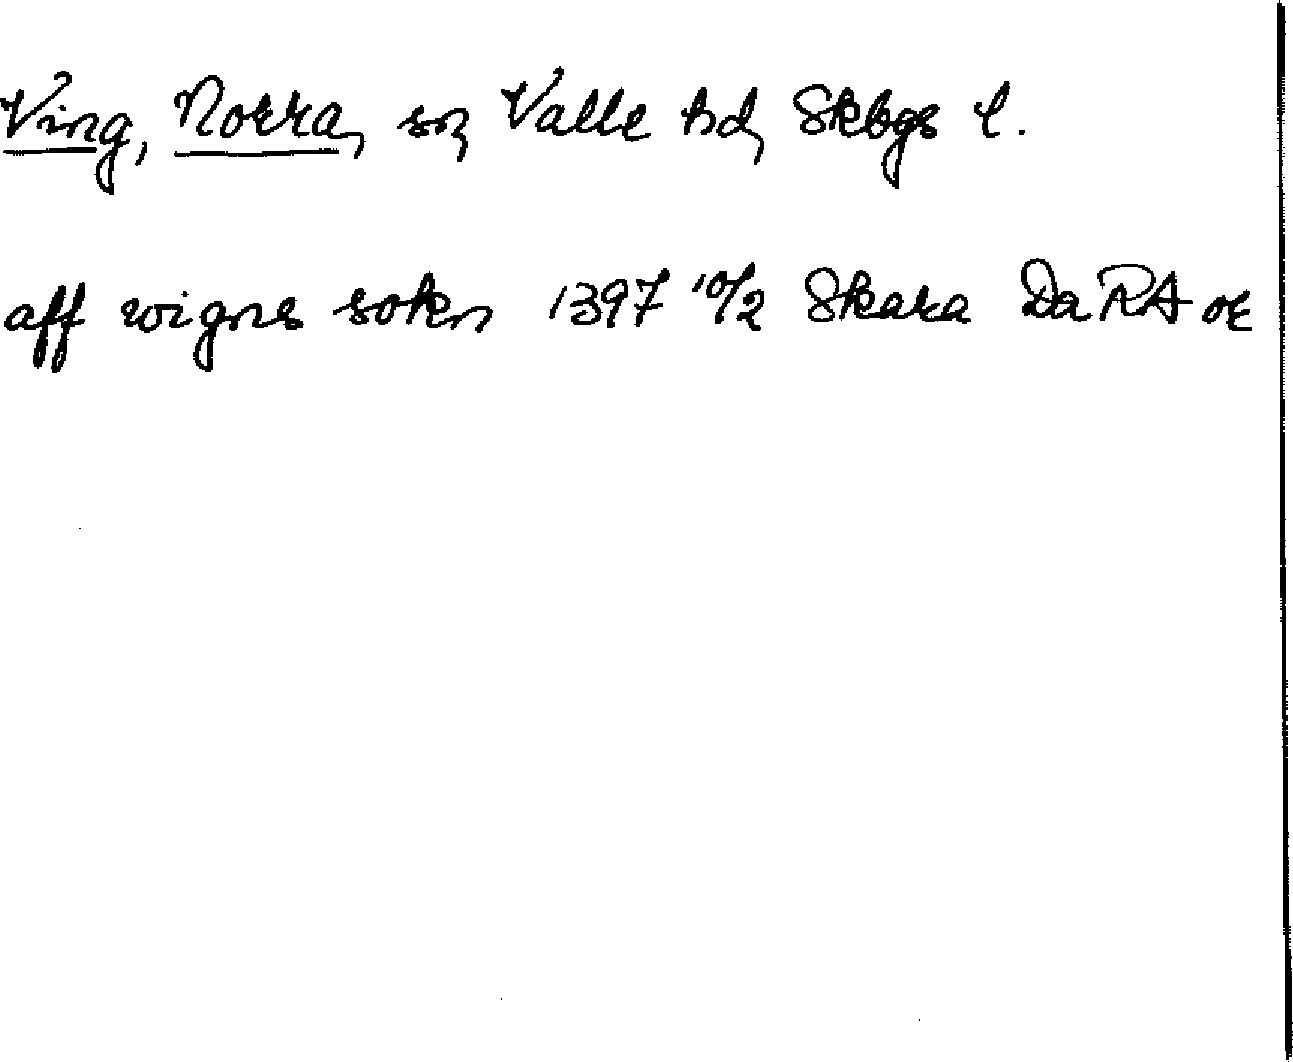 Ving, Norra, sn, Valle hd, Skbgs l.
aff wigns sokn 1397 10/2 Skara Da RA or